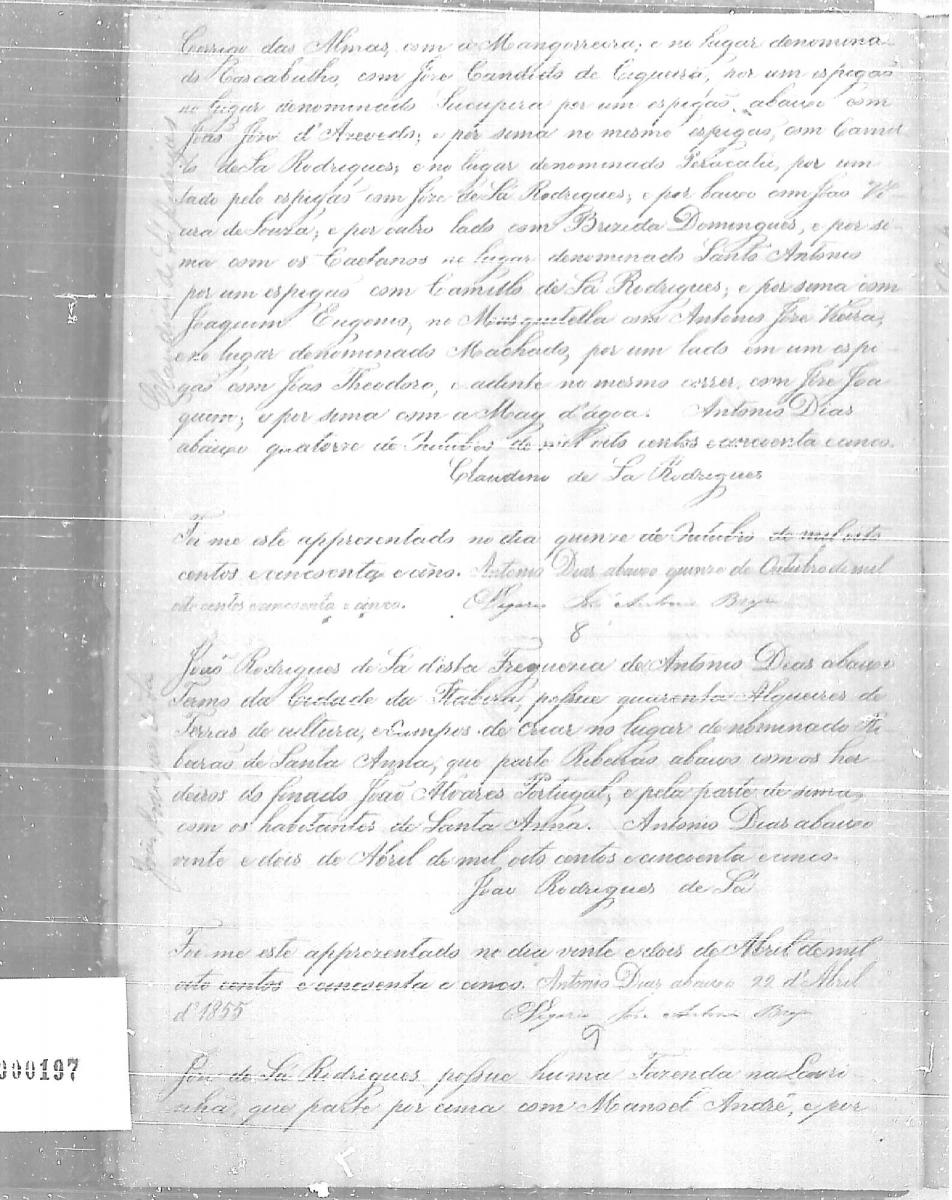 Corrigo das Almas, com a Mangorreira; e no lugar denomina-
do Cascabulho, com Józe Candido de Cirqueira, por um espigaõ
no lugar denominado Sucupira por um espigaõ, abaixo com
Joaõ Józe d'Azevedo; e por sima no mesmo espigaõ, com Camil
lo de Sá Rodrigues; e no lugar denominado por um
lado pelo espigaõ com Józe de Sá Rodrigues; e por baixo com Joaõ Vi-
eira de Souza; e por outro lado com Brizida Domingues, e por si-
ma com os Caetanos no lugar denominado Santo Antonio
por um espigaõ com Camillo de Sá Rodrigues; e por sima com
Joaquim Eugenio, no com Antonio Józe Vieira,
e no lugar denominado Machado, por um lado em um espi-
gaõ com Joaõ Theodoro, e adiente no mesmo correr, com Józe Joa
quim; e por sima com a May d'agoa. Antonio Dias
abaixo quatorze de Outubro de mil oito centos e cincoenta e cinco.
Claudino de Sá Rodrigues
Foi me este apprezentado no dia quinze de Outubro de mil oito
centos e cincoenta e cinco. Antonio Dias abaixo quinze de Outubro de mil
oito centos e cincoenta e cinco. O Vigario José Antonio
8
Joaõ Rodrigues de Sá desta Freguezia de Antonio Dias abaixo
Termo da Cidade da Itabira, possue quarenta Alqueires de
Terras de cultura, e Campos de criar no lugar denominado Ri-
beiraõ de Santa Anna, que parte Ribeiraõ abaixo com os her-
deiros do finado Joaõ Alvares Portugal, e pela parte de sima,
com os habitantes de Santa Anna. Antonio Dias abaixo
vinte e dois de Abril de mil oito centos e cincoenta e cinco.
Joaõ Rodrigues de Sá
Foi me este apprezentado no dia vinte e dois de Abril de mil
oito centos e cincoenta e cinco. Antonio Dias abaixo 22 d'Abril
d'1855 O Vigario José Antonio
9
Józe de Sá Rodrigues, possue huma Fazenda na
que parte por cima com Manoel André, e por
000197